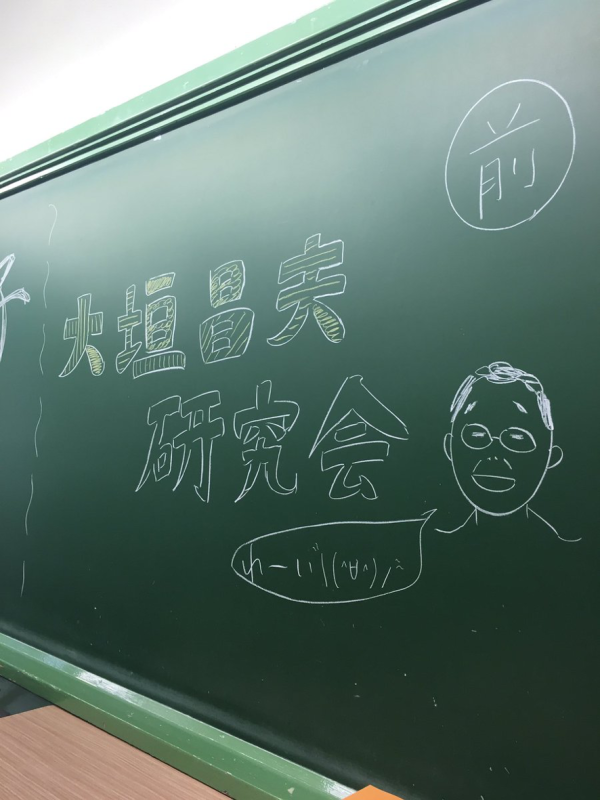 前
大垣昌夫
研究会
わーい\(^∀^)/